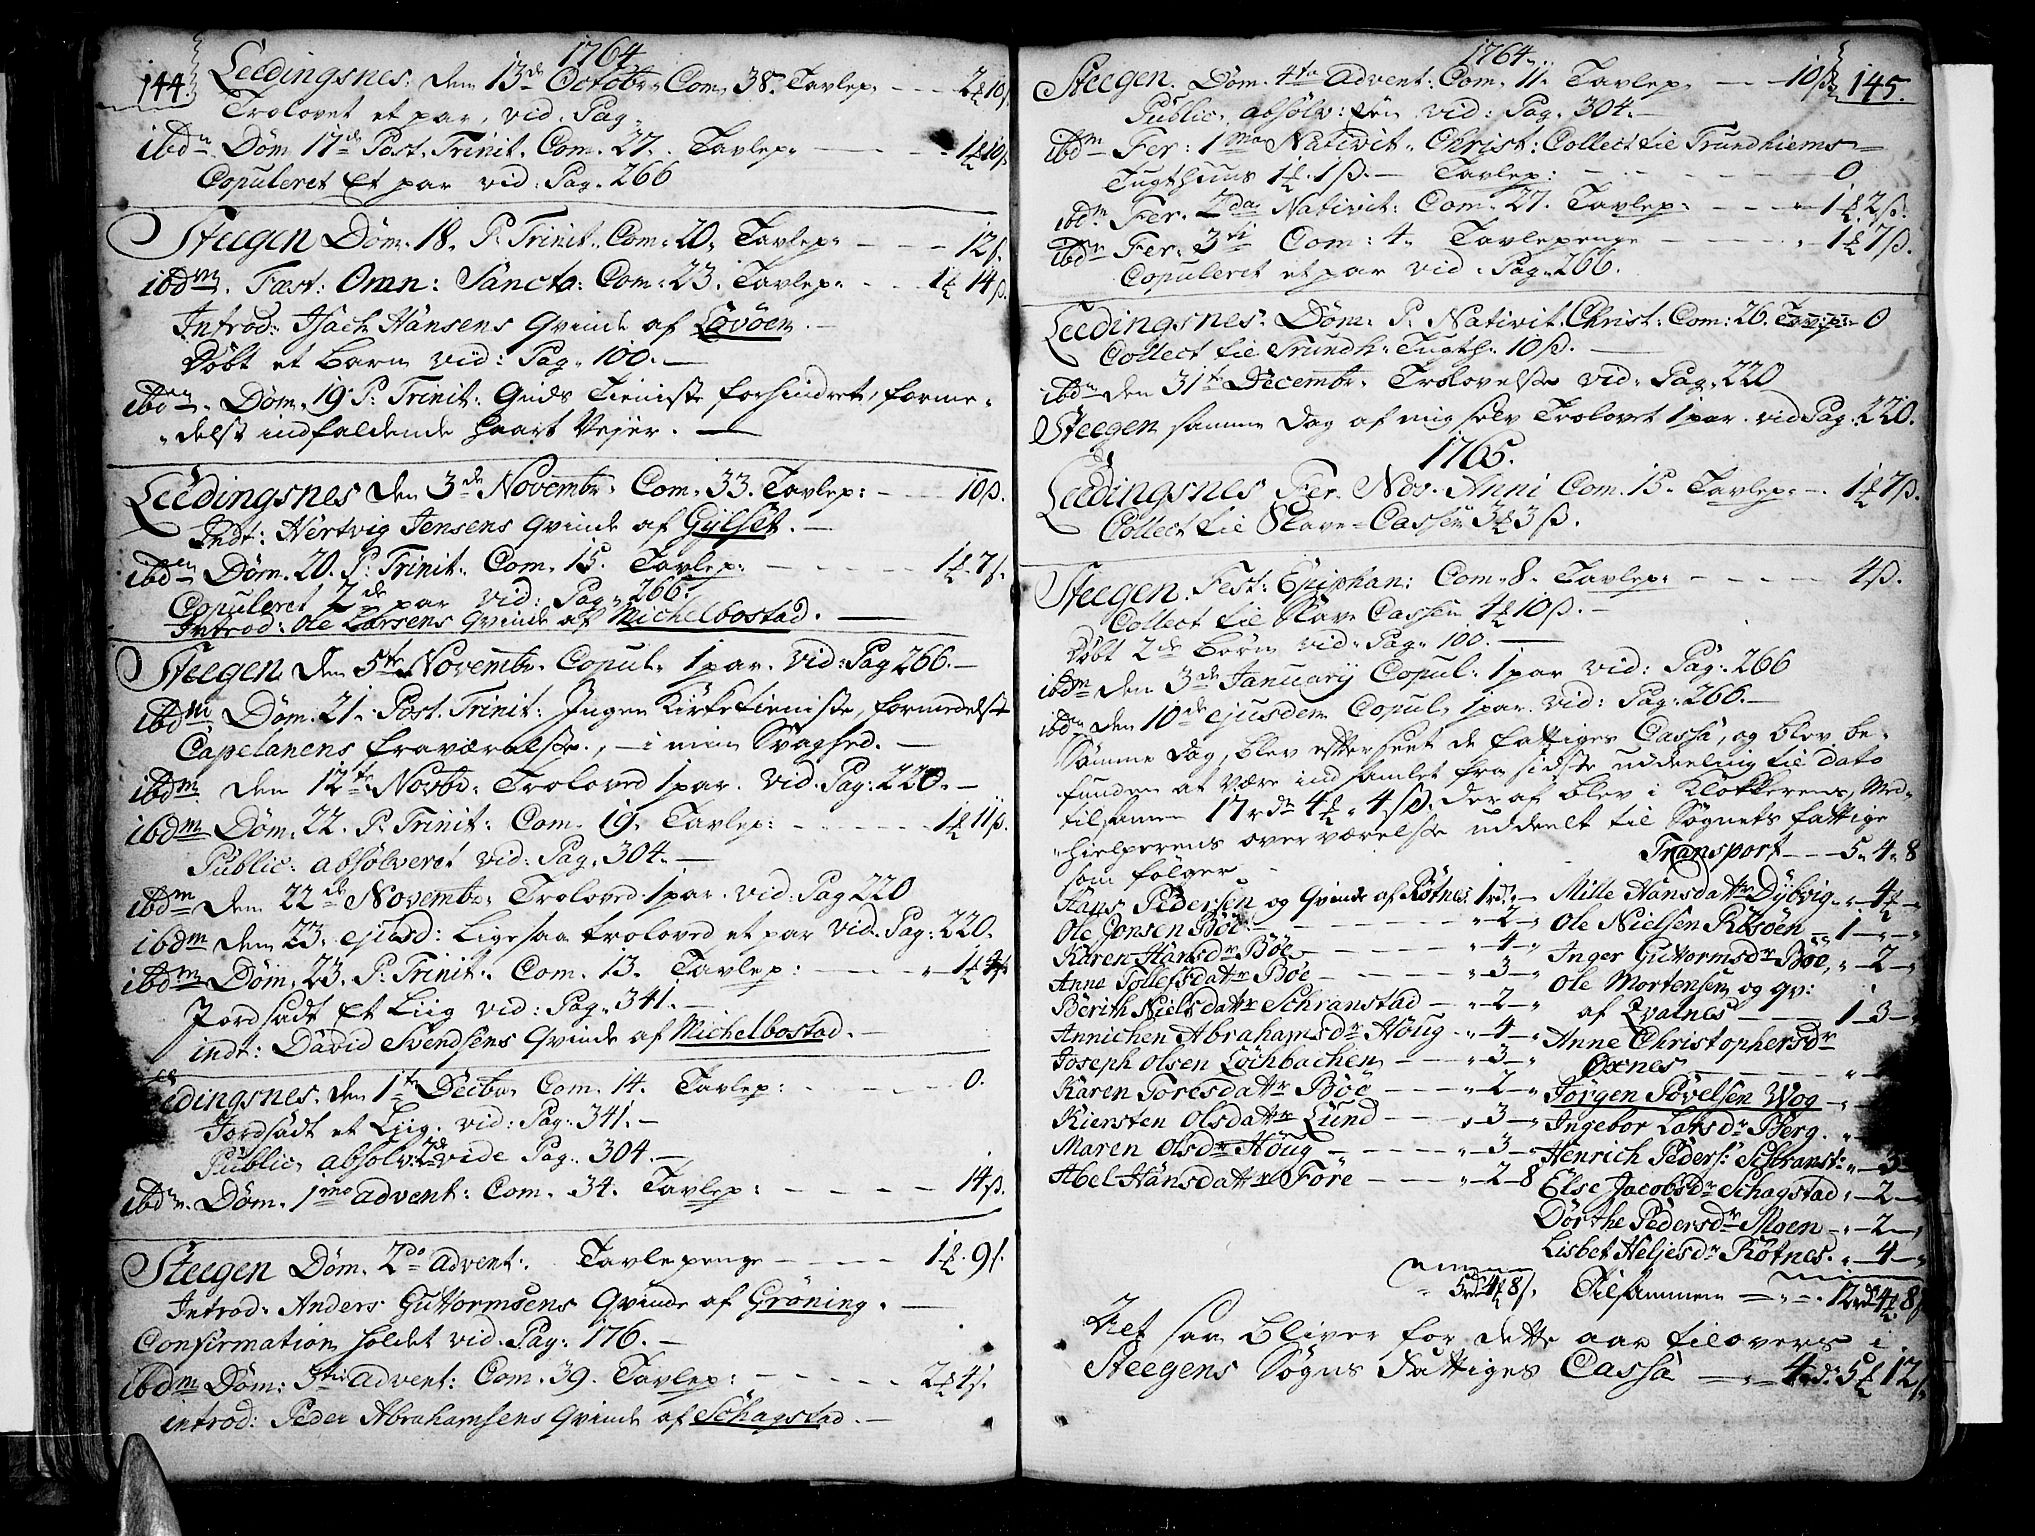 1764.
144. Leedingsnes: den 13de Octobr: Com. 38. Tavlep: - - - 2 10ß.
Trolovet et par, vid: Pag:
ibdm Dom. 17de Post. Trinit. Com. 27. Tavlep: - - - 1 10ß
Copuleret Et par vid: Pag. 266
Steegen Dom. 18. P. Trinit. Com: 20. Tavlep: - - - 12ß.
ibdm. Fæst: Omn: Sancto: Com: 23. Tavlep: - - - 1 14ß.
Introd: Isach Hansens Qvinde af Løvöen. -
Döbt et Barn vid: Pag. 100. -
ibdm. Dom. 19. P. Trinit: Guds Tieniste forhindret, forme-
delst indfaldende haart Vejer. -
Leedingsnes den 3de Novembr: Com. 33. Tavlep: - - - 10ß.
Indt: Hertvig Jensens Qvinde af Gylset. -
ibdm Dom. 20. P. Trinit: Com. 15. Tavlep: - - - 1 7ß.
Copuleret 2de par vid: Pag. 266.
Introd: Ole Larsens Qvinde af Michelbostad. -
Steegen den 5te Novembr. Copul: 1 par. Vid: Pag 266. -
ibdm Dom. 21. Post. Trinit: Ingen Kirketieniste, formedelst
Capelanens fraværelse, - i min Svaghed. -
ibdm den 12te Novbr: Troloved 1 par. vid. Pag: 220. -
ibdm Dom. 22. P. Trinit: Com. 19. Tavlep: - - - 1 11ß.
Public: absolveret vid: Pag. 304. -
ibdm den 22de Novembr: Troloved 1 par. vid: Pag 220
ibdm den 23. ejusd: Ligesaa troloved et par vid. Pag: 220.
ibdm Dom. 23. P. Trinit: Com. 13. Tavlep: - - - 1
Jordsadt Et Liig vid: Pag: 341. -
indt: David Svendsens Qvinde af Michelbostad. -
Leedingsnes. den 1te Decbr. Com. 14. Tavlep: - - - 0.
Jordsadt et Liig. vid: Pag: 341. -
Public: absolv: 2de vide Pag: 304. -
ibdm. Dom. 1mo advent: Com. 34. Tavlep: - - - 14ß.
Steegen Dom. 2do advent: Tavlepenge - - - 1 9ß.
Introd: Anders Guttormsens Qvinde af Gröning. -
Confirmation holdet vid. Pag: 176. -
ibdm Dom: 3tio advent: Com. 39. Tavlep: - - - 2 4ß.
introd: Peder Abrahamsens Qvinde af Schagstad. -
1764.
Steegen. Dom. 4ta advent: Com. 11. Tavlep. - - 10ß 145.
Public: absolv: vid: Pag. 304. -
ibdm Fer: 1ma Nativit. Christ: Collect til Trundhiems
Tugthuus 1 1ß. - Tavlep: - - - 0
ibdm Fer. 2da Nativit: Com. 27. Tavlep: - - - 1 2ß.
ibdm Fer. 3ti Com: 4. Tavlepenge - - - 1 7ß.
Copuleret et par vid: Pag. 266.
Leedingsnes. Dom. P. Nativit. Christ: Com: 26. Tavlep: 0
Collect til Trundh: Tugth: 10ß. -
ibdm den 31te Decembr. Trolovelse vid: Pag. 220
Steegen samme dag af mig selv Trolovet 1 par. vid Pag. 220.
1765.
Leedingsnes Fer. Nov. Anni Com. 15. Tavlep: - 1 7ß.
Collect til Slave-Cassen 3 3ß.
Steegen. Fest: Epiphan: Com. 8. Tavlep: - - - 4ß.
Collect til Slave Cassen 4 10ß. -
Döbt 2de Börn vid: Pag. 100. -
ibdm den 3de Januarij Copul: 1 par vid: Pag: 266
ibdm den 10de ejusdem Copul. 1 par. vid: Pag: 266. -
Samme dag, blev efterseet de fattiges Cassa, og blev be-
funden at være indsamlet fra sidste uddeeling til dato
tilsamen 17 rdr 4 4ß. deraf blev i Klokkerens, Med-
hielperens overværelse uddeelt til Sognets fattige
som fölger.
Transport - - 5. 4. 8
Hans Pedersen og Qvinde af Røtnes. 1 rd: -
Ole Jensen Böe - - - 2 -
Karen Hansdr Böe - - - 4 -
Anne Tollefsdattr Böe - - - 3 -
Berith Nielsdattr Schranstad - - 2 -
Annichen Abrahamsdr Houg - 4 -
Joseph Olsen Lochbachen - - 3 -
Karen Toresdattr Böe - - 2 -
Kiersten Olsdattr Lund - - 3 -
Maren Olsdr Houg - - - 3 -
Abel Hansdattr Fore - - - 2 - 8
Mille Hansdattr Dybvig - 4 -
Ole Nielsen Rösöen - 1 - -
Inger Guttormsdr Böe - 2 -
Ole Mortensen og qv:
af Qvalnes - - 1 - 3 -
Anne Christophersdr
Oxnes - - -
Jörgen Povelsen Wog -
Ingebor Larsdr Berg. -
Henrich Peders: Schranst: - 3 -
Else Jacobsdr Schagstad - 2 -
Dorthe Pedersdr Moen - 2 -
Lisbet Heljesdr Røtnes. - 4 -
5 rd 4 8ß. Tilsammen - - 12 rdr 4 8ß
Det saa bliver for dette aar tilovers i
Steegens Sogns Fattiges Cassa - - 4 rdr 5 12ß